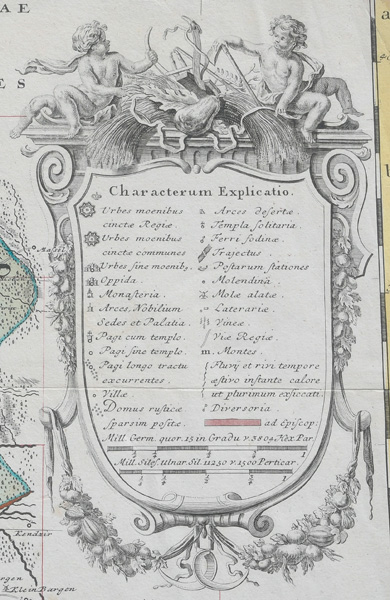 AE
ES
Characterum Explicatio.
Urbes moenibus
cinctæ Regiæ
Urbes moenibus
cinctæ communes
Urbes sine moenib.
Oppida.
Monasteria.
Arces Nobilium
Sedes et Palatia.
Pagi cum templo.
Pagi sine templo.
Pagi longo tractu
excurrentes.
Villæ
Domus rusticæ
sparsim positæ.
Arces desertæ.
Templa solitaria.
Ferri fodinæ.
Trajectus.
Postarum stationes
Molendina.
Molæ alatæ.
Laterariæ.
Vineæ.
Viæ Regiæ.
m. Montes.
Fluvij et rivi tempore
æstivo instante calore
ut plurimum exsiccati.
Diversoria.
ad Episcop.
Mill. Germ. quor. 15 in Gradu v. 3809 Hex. Par.
Mill. Siles. Ulnar. Sil. 11250 v. 1500 Perticar.
Kendzir
Klein Bargen